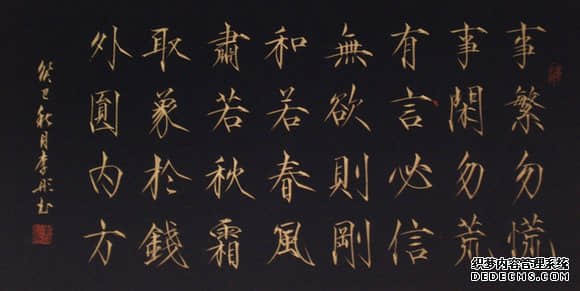 事繁勿慌
事閑勿荒
有言必信
無欲則剛
和若春風
肅若秋霜
取象於錢
外圓内方
癸巳秋月李彤书
织梦内容管理系统
DEDECMS.COM